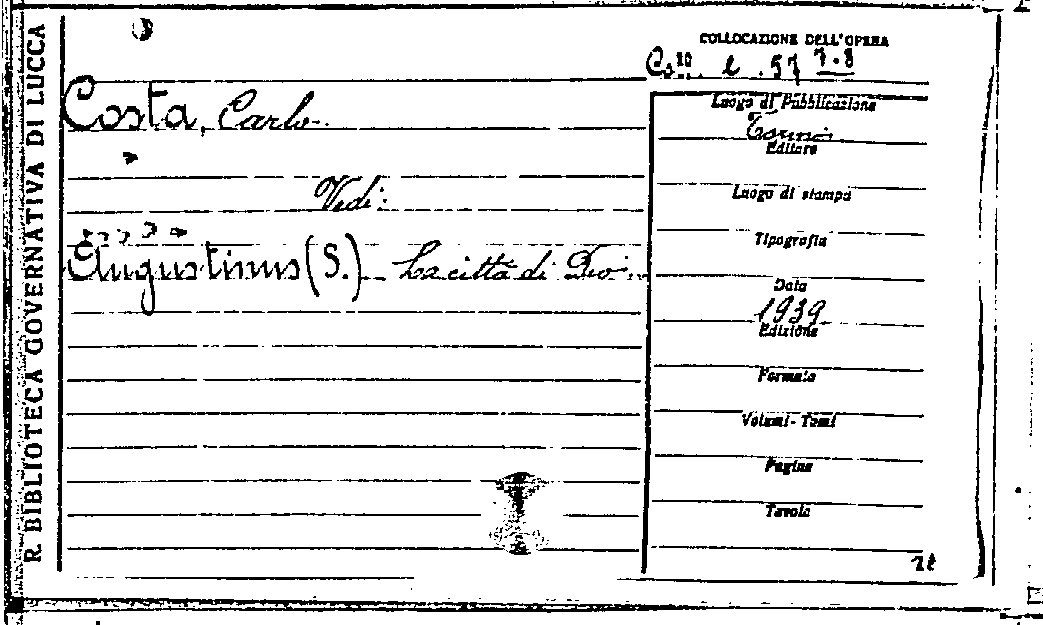 R. BIBLIOTECA GOVERNATIVA DI LUCCA
COLLOCAZIONE DELL'OPERA
l. 57 7-8
Costa, Carlo
Vedi:
Augustinus (S.) La città di Dio.
Luogo di Pubblicazione
Torino
Editore
Luogo di stampa
Tipografia
Data
1939
Edizione
Formato
Volumi-Tomi
Pagine
Tavole